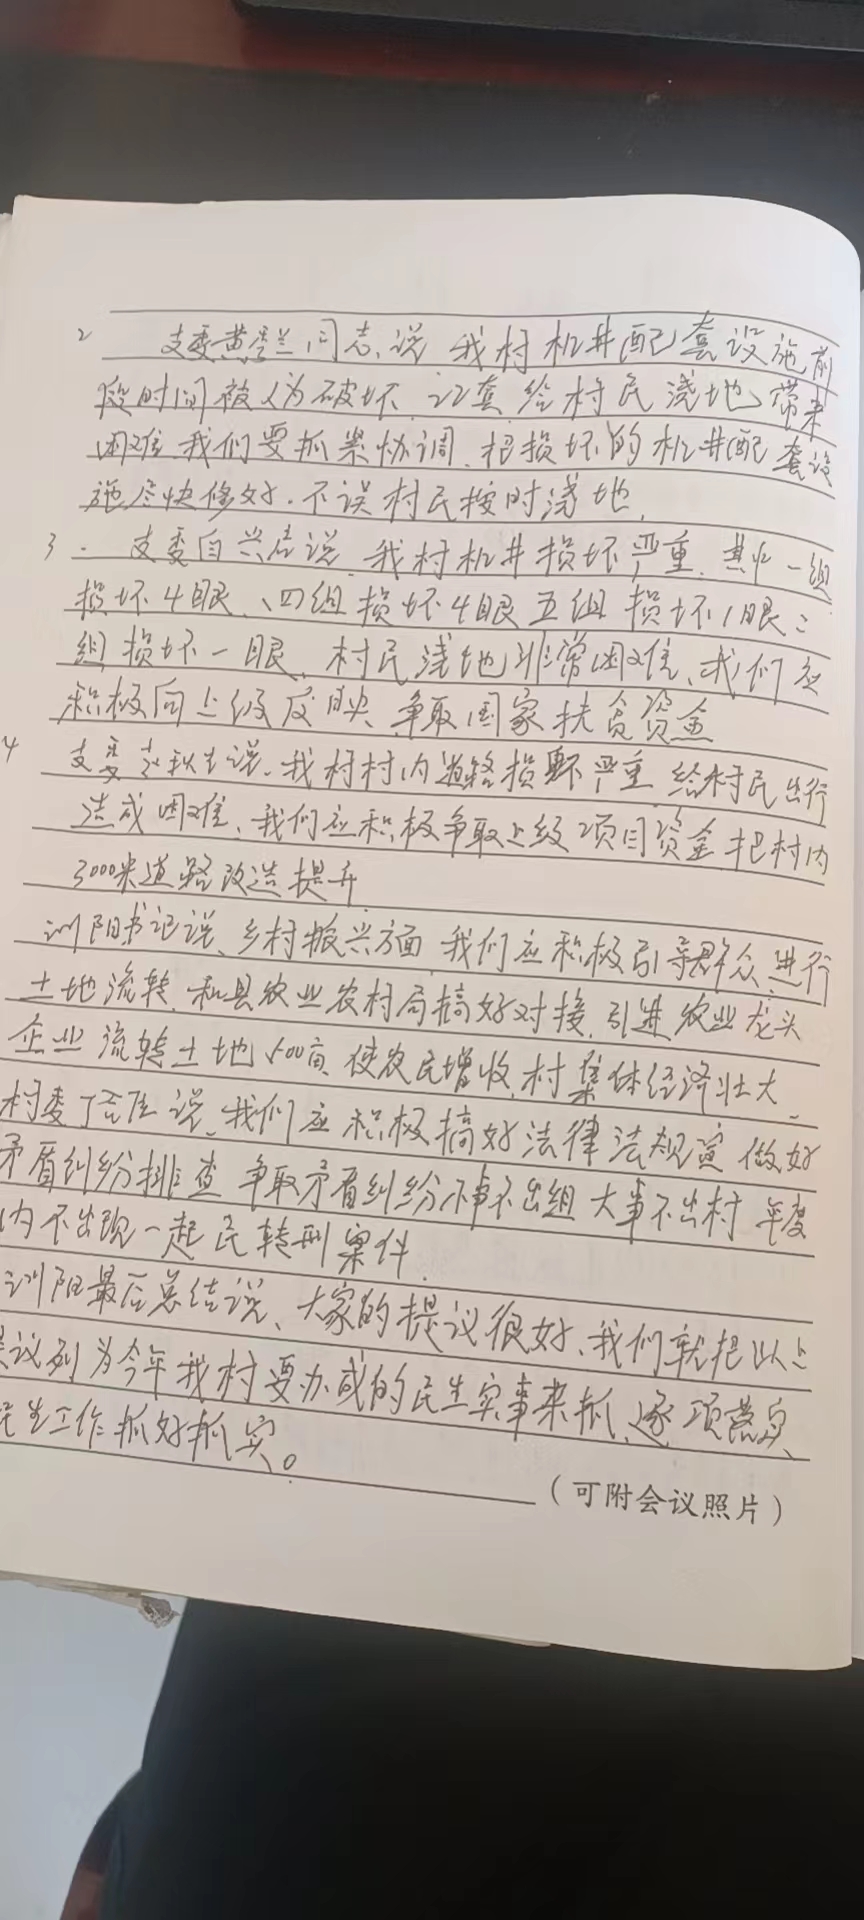 2 支委黄兰同志说 我村机井配套设施前
段时间被人为破坏 22套给村民浇地带来
困难 我们要抓紧协调、把损坏的机井配套设
施尽快修好.不误村民按时浇地
3. 支委自兴店说 我村机井损坏严重、其中一组
损坏4眼、四组损坏4眼五组 损坏1眼二
组损坏一眼、村民浇地非常困难、我们应
积极向上级反映 争取国家扶贫资金
4 支委秋生说、我村村内道路损坏严重 给村民出行
造成困难、我们应积极争取上级项目资金把村内
3000米道路改造提升
训阳书记说、乡村振兴方面 我们应积极引导群众进行
土地流转、和县农业农村局搞好对接、引进农业龙头
企业流转土地500亩 使农民增收、村集体经济壮大、
村委丁说、我们应积极搞好法律法规宣 做好
矛盾纠纷排查 争取矛盾纠纷小事不出组 大事不出村 年度
内不出现一起民转刑案件.
训阳最后总结说、大家的提议很好、我们就把以上
议列为今年我村要办成的民生实事来抓、逐项落实、
民生工作抓好抓实。
(可附会议照片)